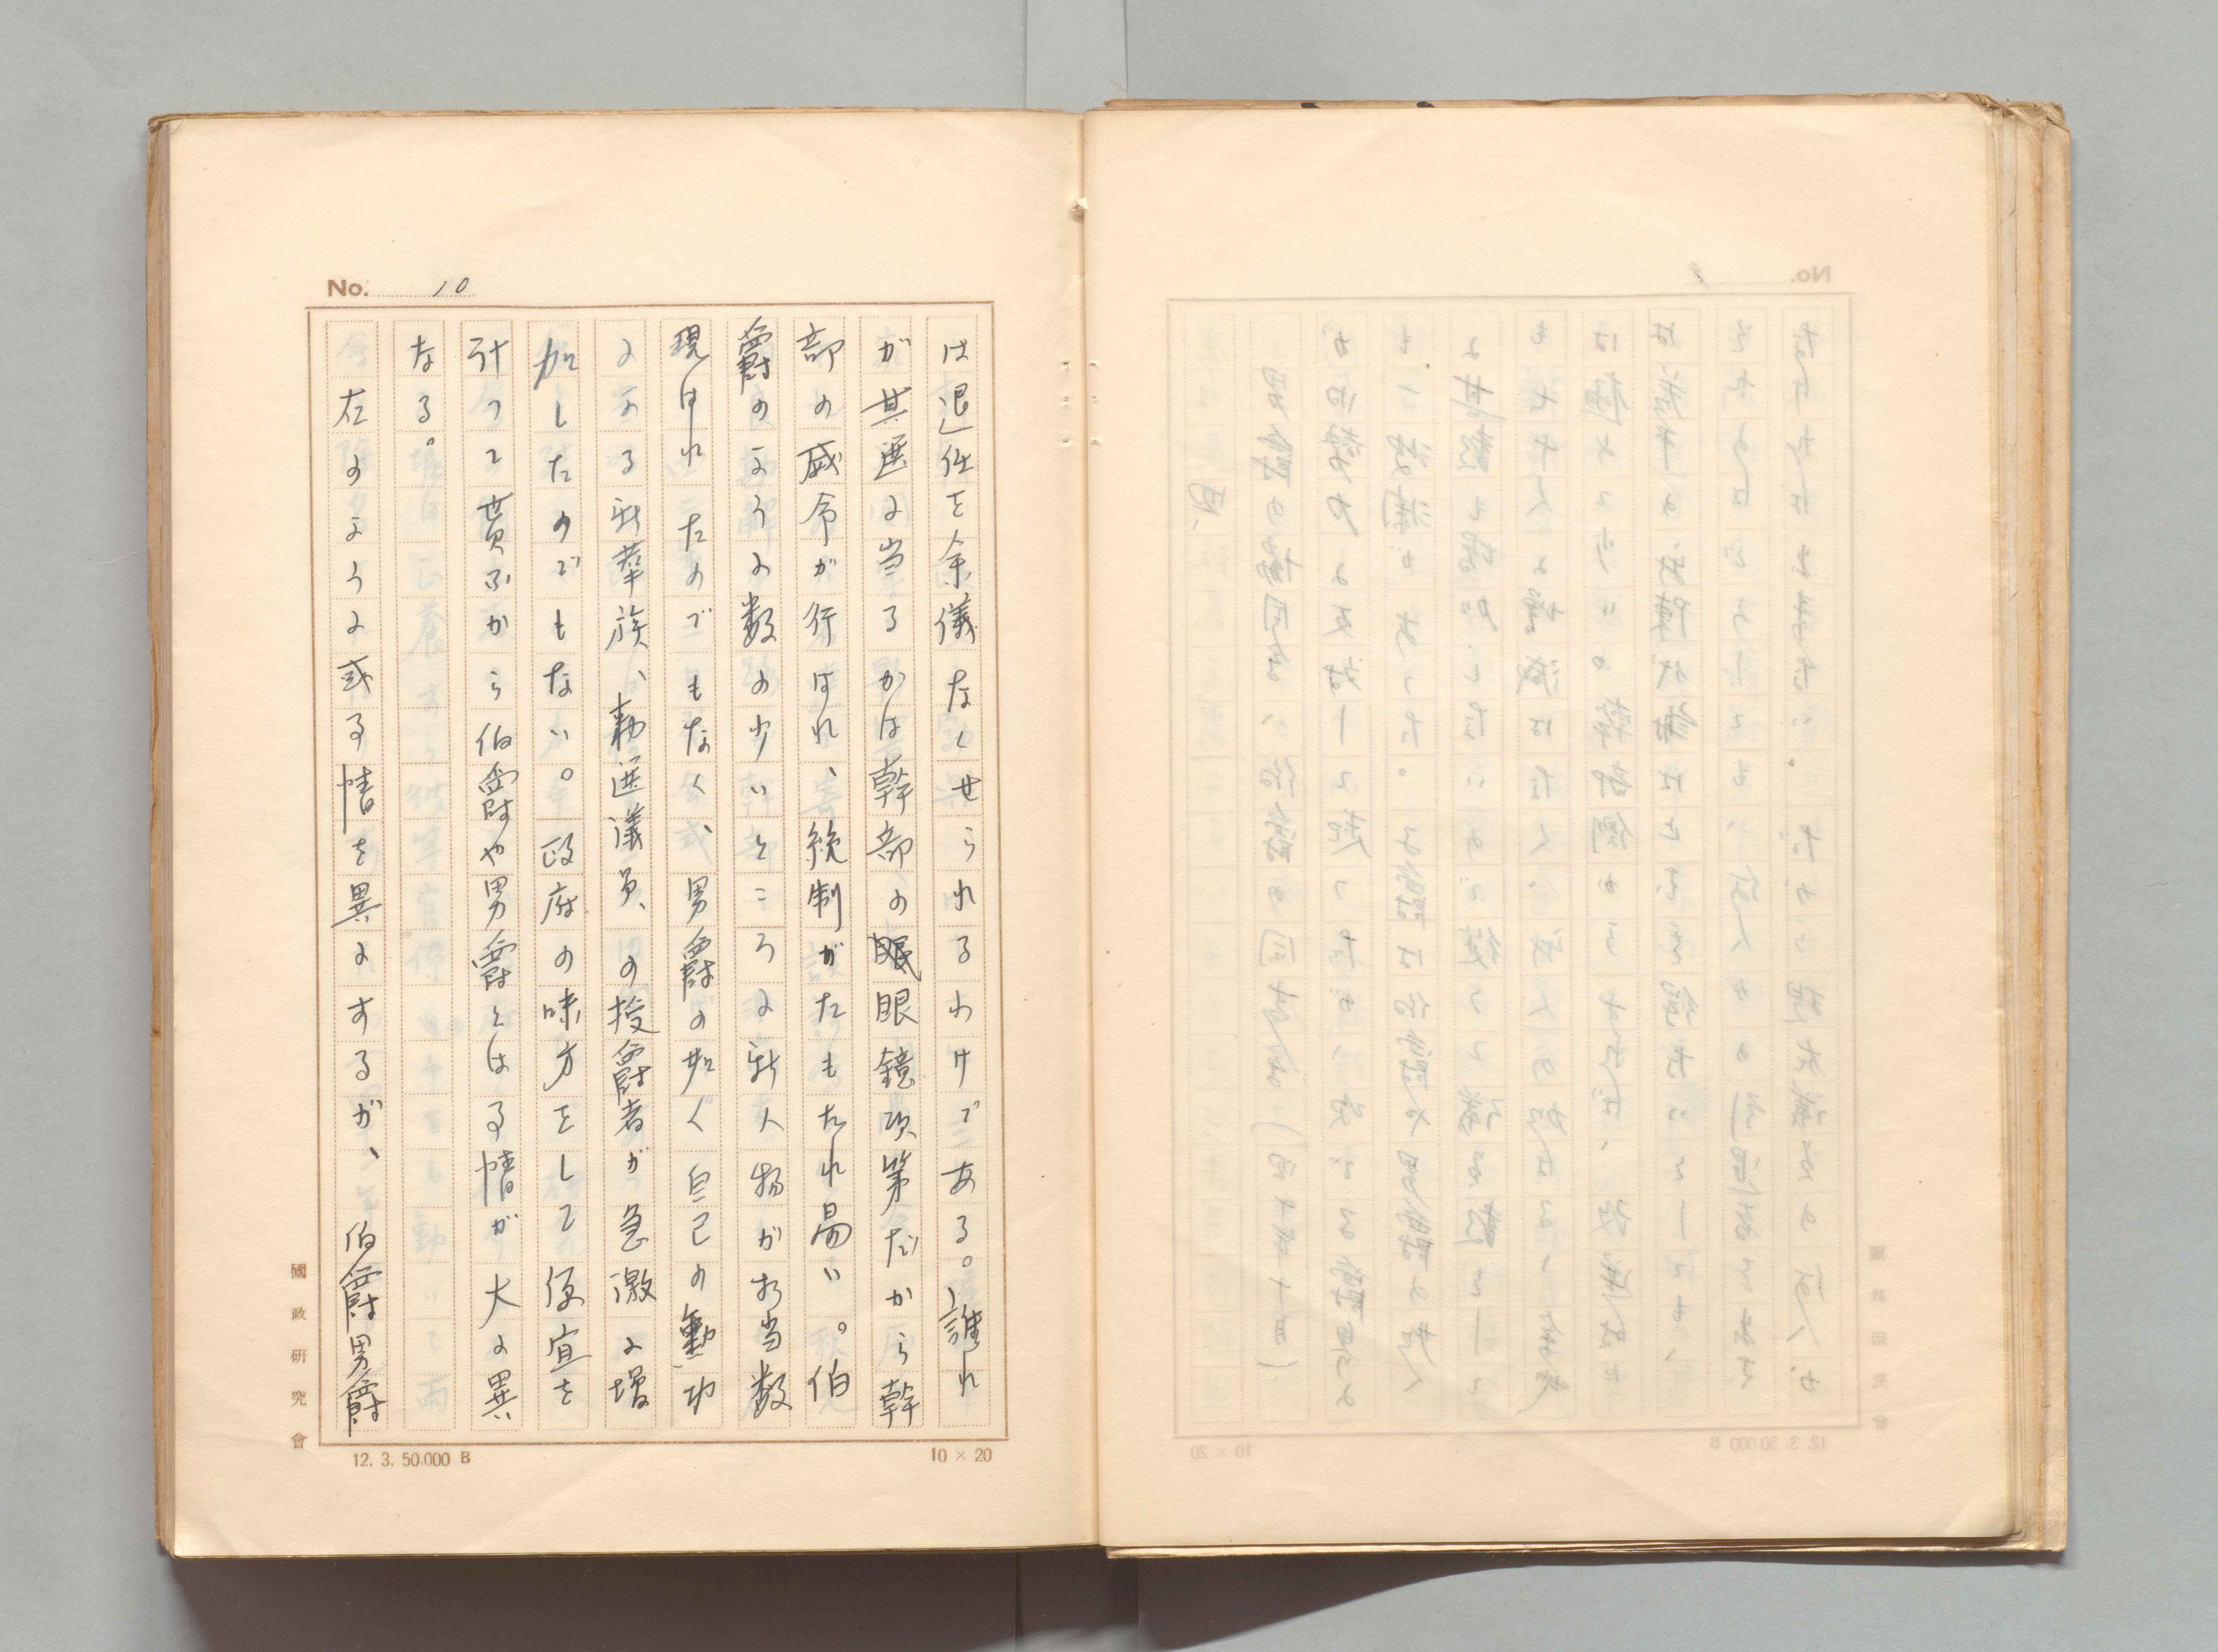 No. 10
は退任を余儀なくせられるわけである。誰れ
が其選に当るかは幹部の眼鏡次第だから幹
部の威令が行はれ、統制がたもたれ易い。伯
爵のように数の少いところに新人物が相当数
現はれたのでもなく、男爵の如く自己の勲功
による新華族、勅選議員、の授爵者が急激に増
加したのでもない。政府の味方をして便宜を
計つて貰ふから伯爵や男爵とは事情が大に異
なる。
左のように或事情を異にするが、伯爵男爵
國政研究會
12. 3. 50.000 B
10 × 20